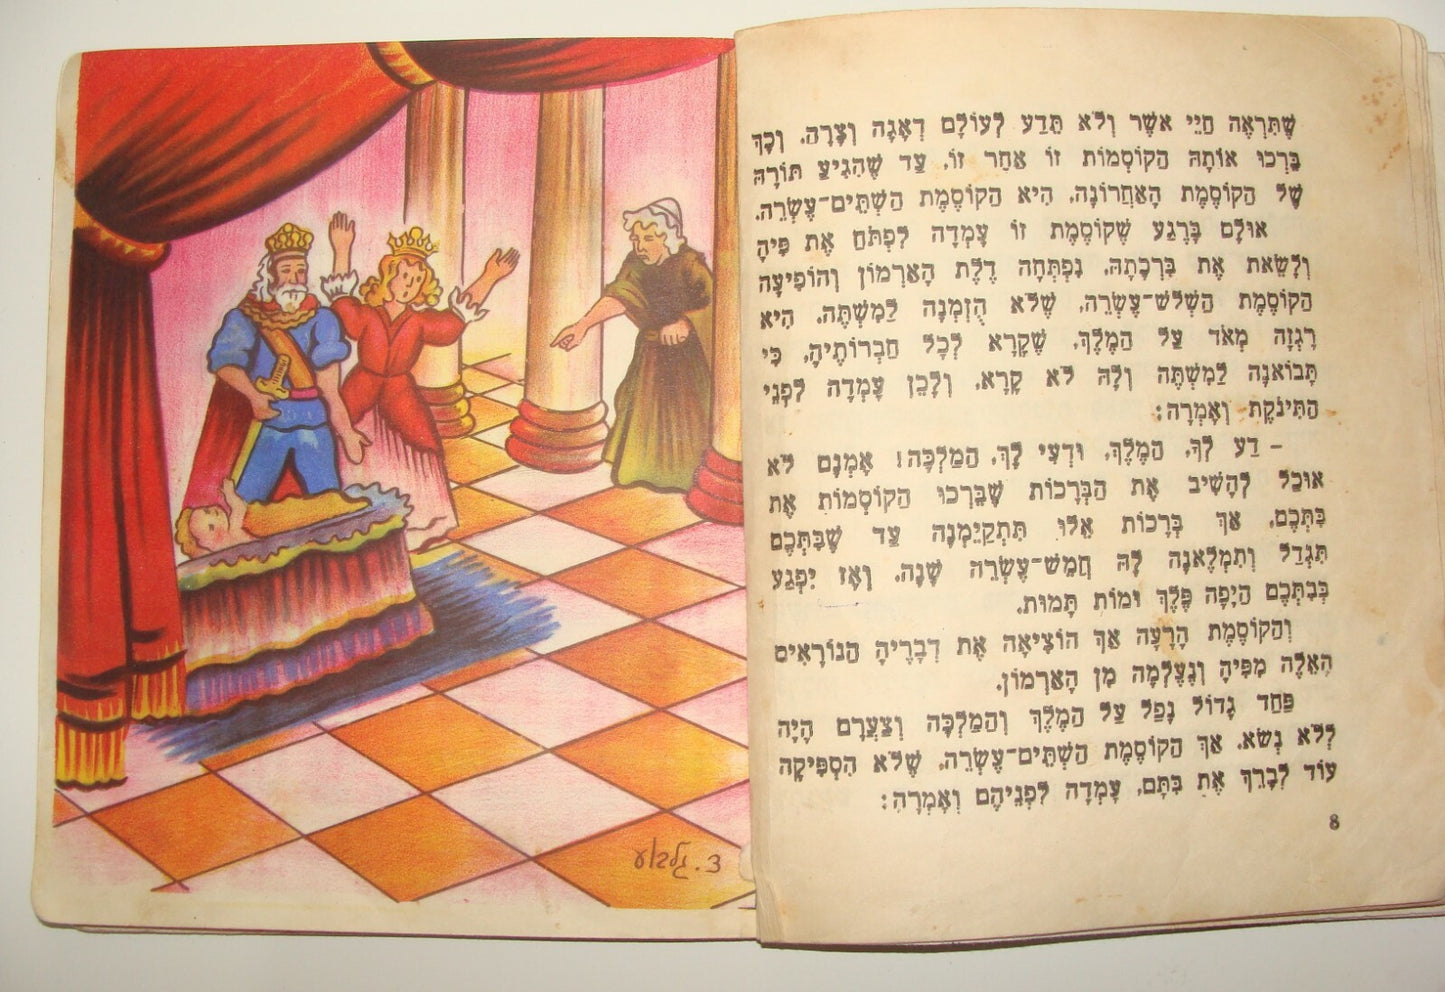 שֶׁתִּרְאֶה חַיֵּי אֹשֶׁר וְלֹא תֵּדַע לְעוֹלָם דְּאָגָה וְצָרָה. וְכָךְ
בֵּרְכוּ אוֹתָהּ הַקּוֹסְמוֹת זוֹ אַחַר זוֹ, עַד שֶׁהִגִּיעַ תּוֹרָהּ
שֶׁל הַקּוֹסֶמֶת הָאַחֲרוֹנָה, הִיא הַקּוֹסֶמֶת הַשְּׁתֵּים־עֶשְׂרֵה.
אוּלָם בָּרֶגַע שֶׁקּוֹסֶמֶת זוֹ עָמְדָה לִפְתֹּחַ אֶת פִּיהָ
וְלָשֵׂאת אֶת בִּרְכָתָהּ, נִפְתְּחָה דֶּלֶת הָאַרְמוֹן וְהוֹפִיעָה
הַקּוֹסֶמֶת הַשְּׁלֹשׁ־עֶשְׂרֵה, שֶׁלֹּא הֻזְמְנָה לַמִּשְׁתֶּה. הִיא
רָגְזָה מְאֹד עַל הַמֶּלֶךְ, שֶׁקָּרָא לְכָל חַבְרוֹתֶיהָ, כִּי
תָּבוֹאנָה לַמִּשְׁתֶּה וְלָהּ לֹא קָרָא, וְלָכֵן עָמְדָה לִפְנֵי
הַתִּינֹקֶת וְאָמְרָה:
– דַּע לְךָ, הַמֶּלֶךְ, וּדְעִי לָךְ, הַמַּלְכָּה! אָמְנָם לֹא
אוּכַל לְהָשִׁיב אֶת הַבְּרָכוֹת שֶׁבֵּרְכוּ הַקּוֹסְמוֹת אֶת
בִּתְּכֶם, אַךְ בְּרָכוֹת אֵלּוּ תִּתְקַיֵּמְנָה עַד שֶׁבִּתְּכֶם
תִּגְדַּל וְתִמְלֶאנָה לָהּ חֲמֵשׁ־עֶשְׂרֵה שָׁנָה. וְאָז יִפְגַּע
בְּבִתְּכֶם הַיָּפָה פֶּלֶךְ וּמוֹת תָּמוּת.
וְהַקּוֹסֶמֶת הָרָעָה אַךְ הוֹצִיאָה אֶת דְּבָרֶיהָ הַנּוֹרָאִים
הָאֵלֶּה מִפִּיהָ וְנֶעֶלְמָה מִן הָאַרְמוֹן.
פַּחַד גָּדוֹל נָפַל עַל הַמֶּלֶךְ וְהַמַּלְכָּה וְצַעֲרָם הָיָה
לְלֹא נְשֹׂא. אַךְ הַקּוֹסֶמֶת הַשְּׁתֵּים־עֶשְׂרֵה, שֶׁלֹּא הִסְפִּיקָה
עוֹד לְבָרֵךְ אֶת בִּתָּם, עָמְדָה לִפְנֵיהֶם וְאָמְרָה:
8